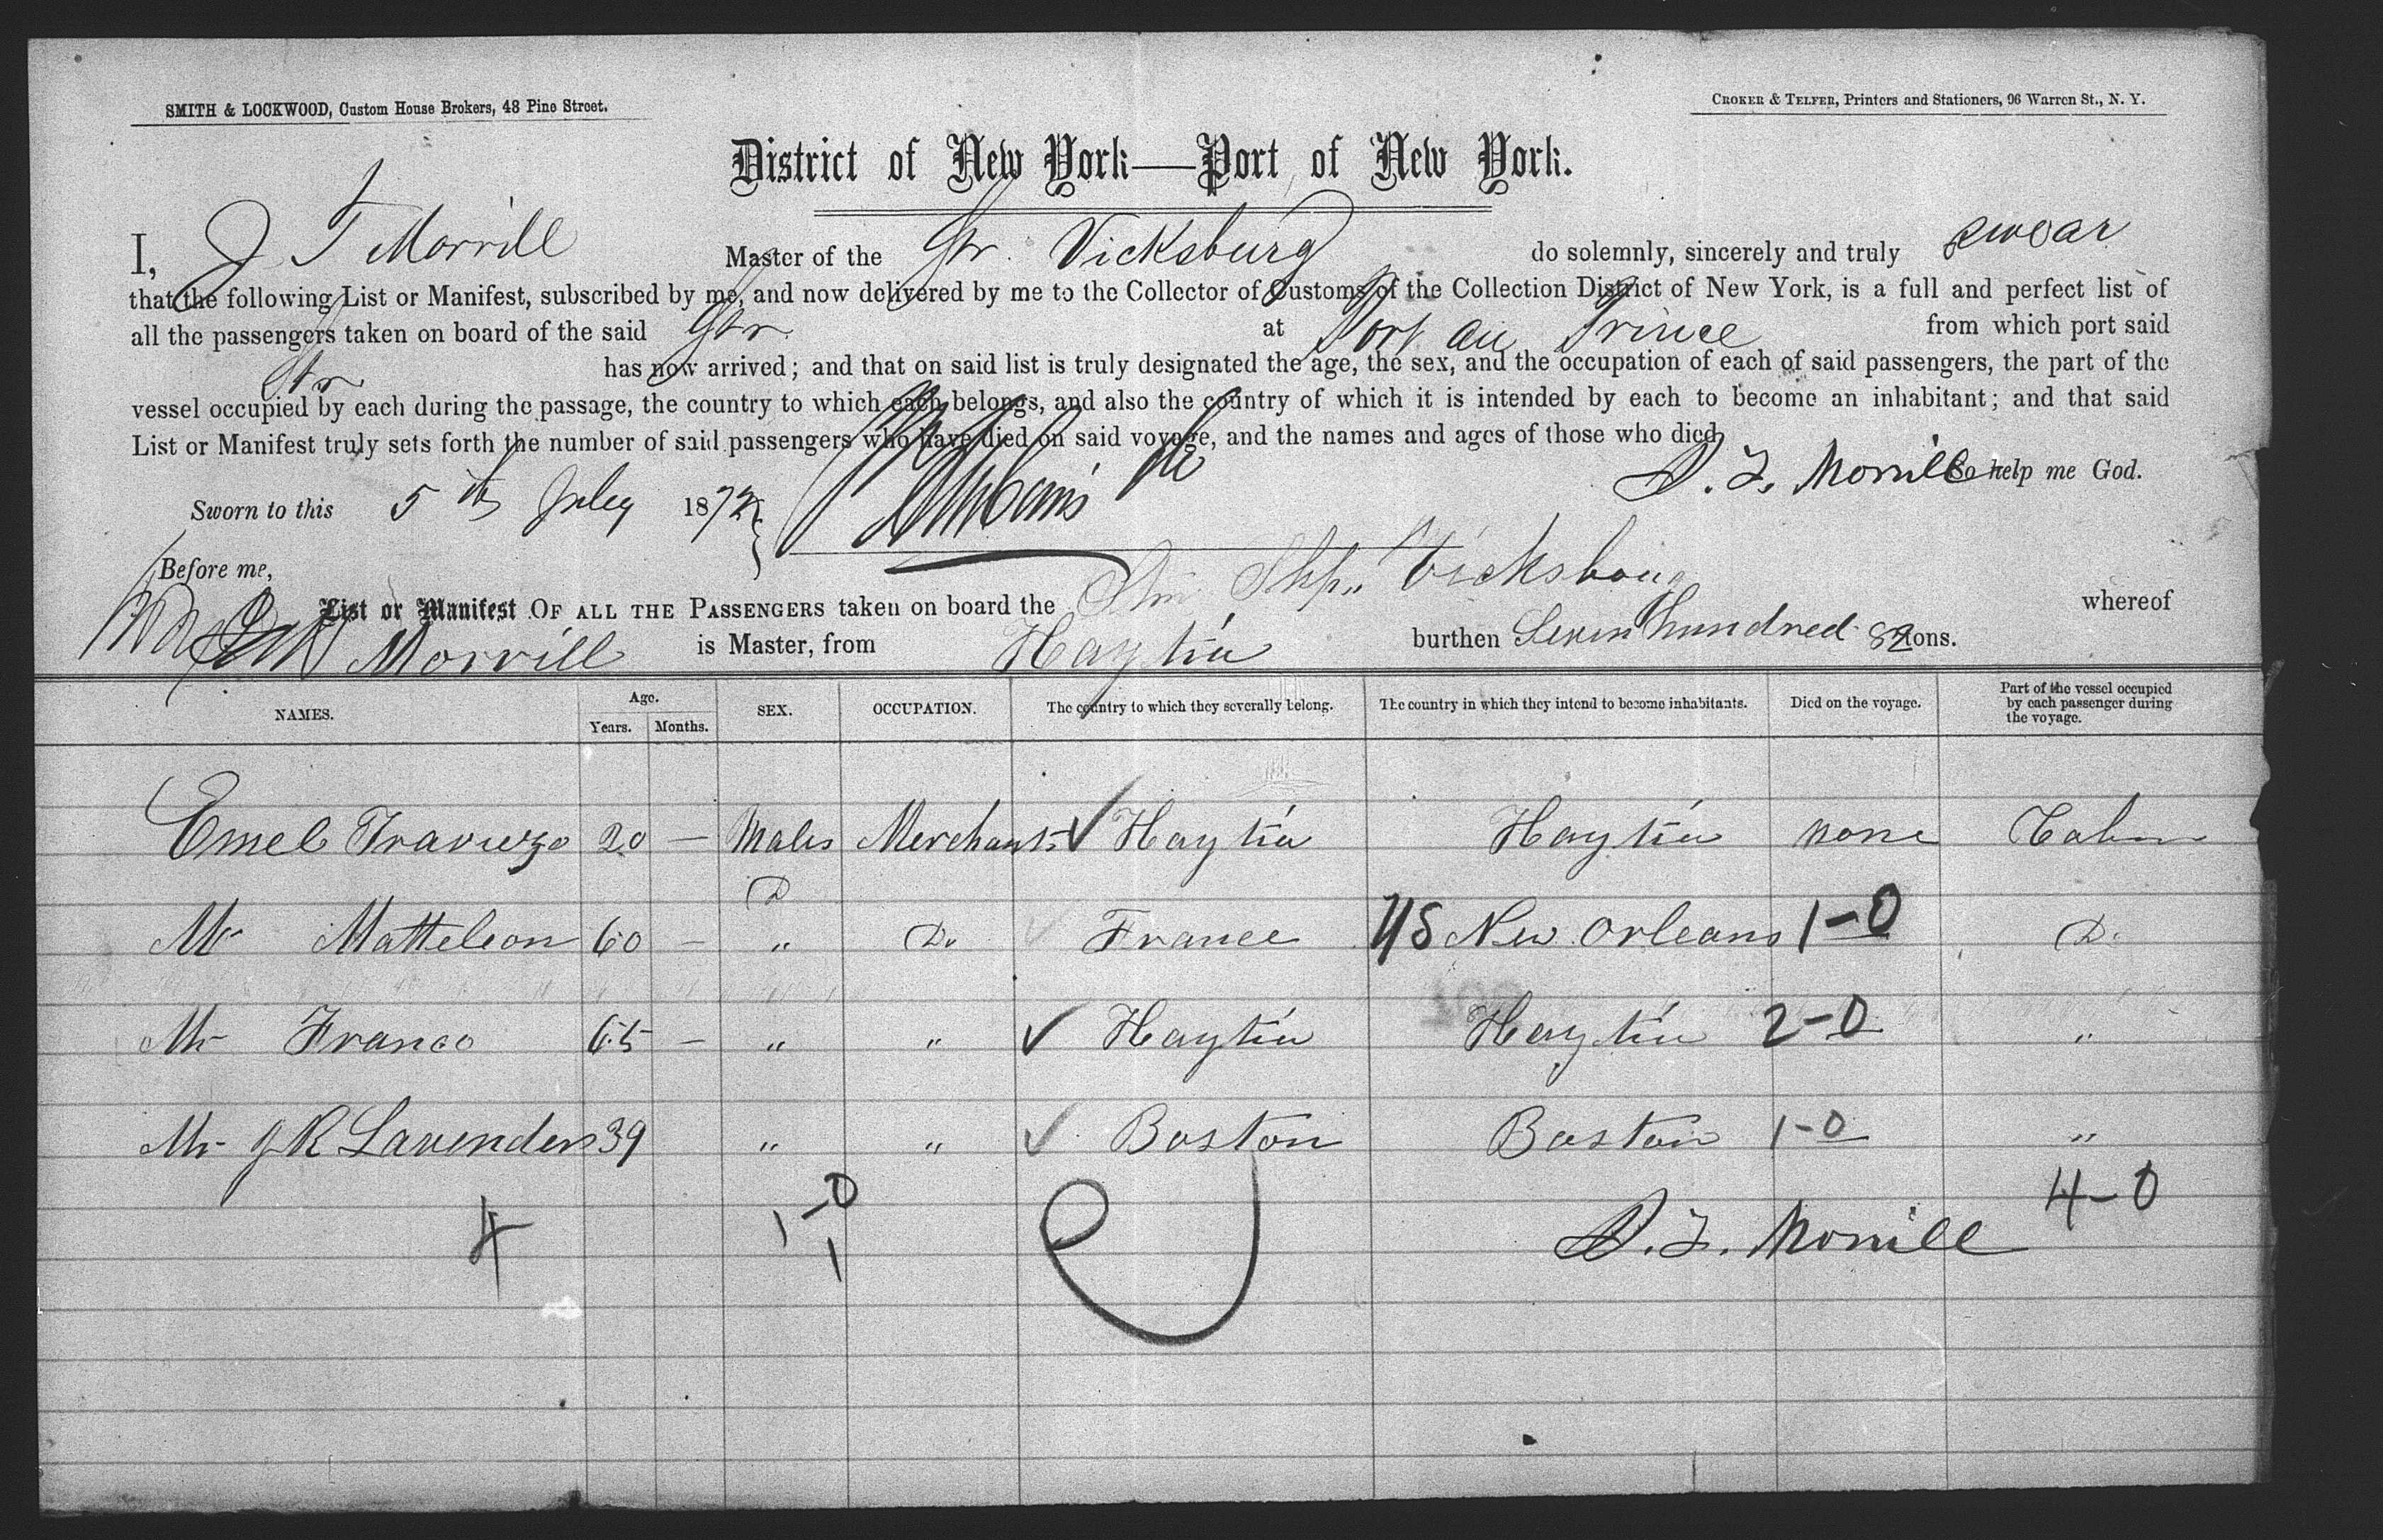 SMITH & LOCKWOOD, Custom House Brokers, 48 Pine Street.
CROKER & TELFER, Printers and Stationers, 96 Warren St., N. Y.
District of New York—Port of New York.
I, J T Morrill Master of the Str. Vicksburg do solemnly, sincerely and truly swear
that the following List or Manifest, subscribed by me, and now delivered by me to the Collector of Customs of the Collection District of New York, is a full and perfect list of
all the passengers taken on board of the said Str. at Port au Prince from which port said
Str has now arrived; and that on said list is truly designated the age, the sex, and the occupation of each of said passengers, the part of the
vessel occupied by each during the passage, the country to which each belongs, and also the country of which it is intended by each to become an inhabitant; and that said
List or Manifest truly sets forth the number of said passengers who have died on said voyage, and the names and ages of those who died.
So help me God.
D. T. Morrill
Sworn to this 5th July 1872
Before me,
List or Manifest OF ALL THE PASSENGERS taken on board the Stm Shp. Vicksbourg whereof
Morrill is Master, from Haytia burthen Seven hundred 82 tons.
NAMES. Age. Years. Months. SEX. OCCUPATION. The country to which they severally belong. The country in which they intend to become inhabitants. Died on the voyage. Part of the vessel occupied by each passenger during the voyage.
Emel 20 — Males Merchants ✓ Haytia Haytia none Cabin
D
Mr Matteleon 60 — " Do ✓ France US New Orleans 1-0 Do
Mr Franco 65 — " " ✓ Haytia Haytia 2-0 "
Mr J R Lavenders 39 " " ✓ Boston Boston 1-0 "
4 1-0 4-0
1
D. T. Morrill